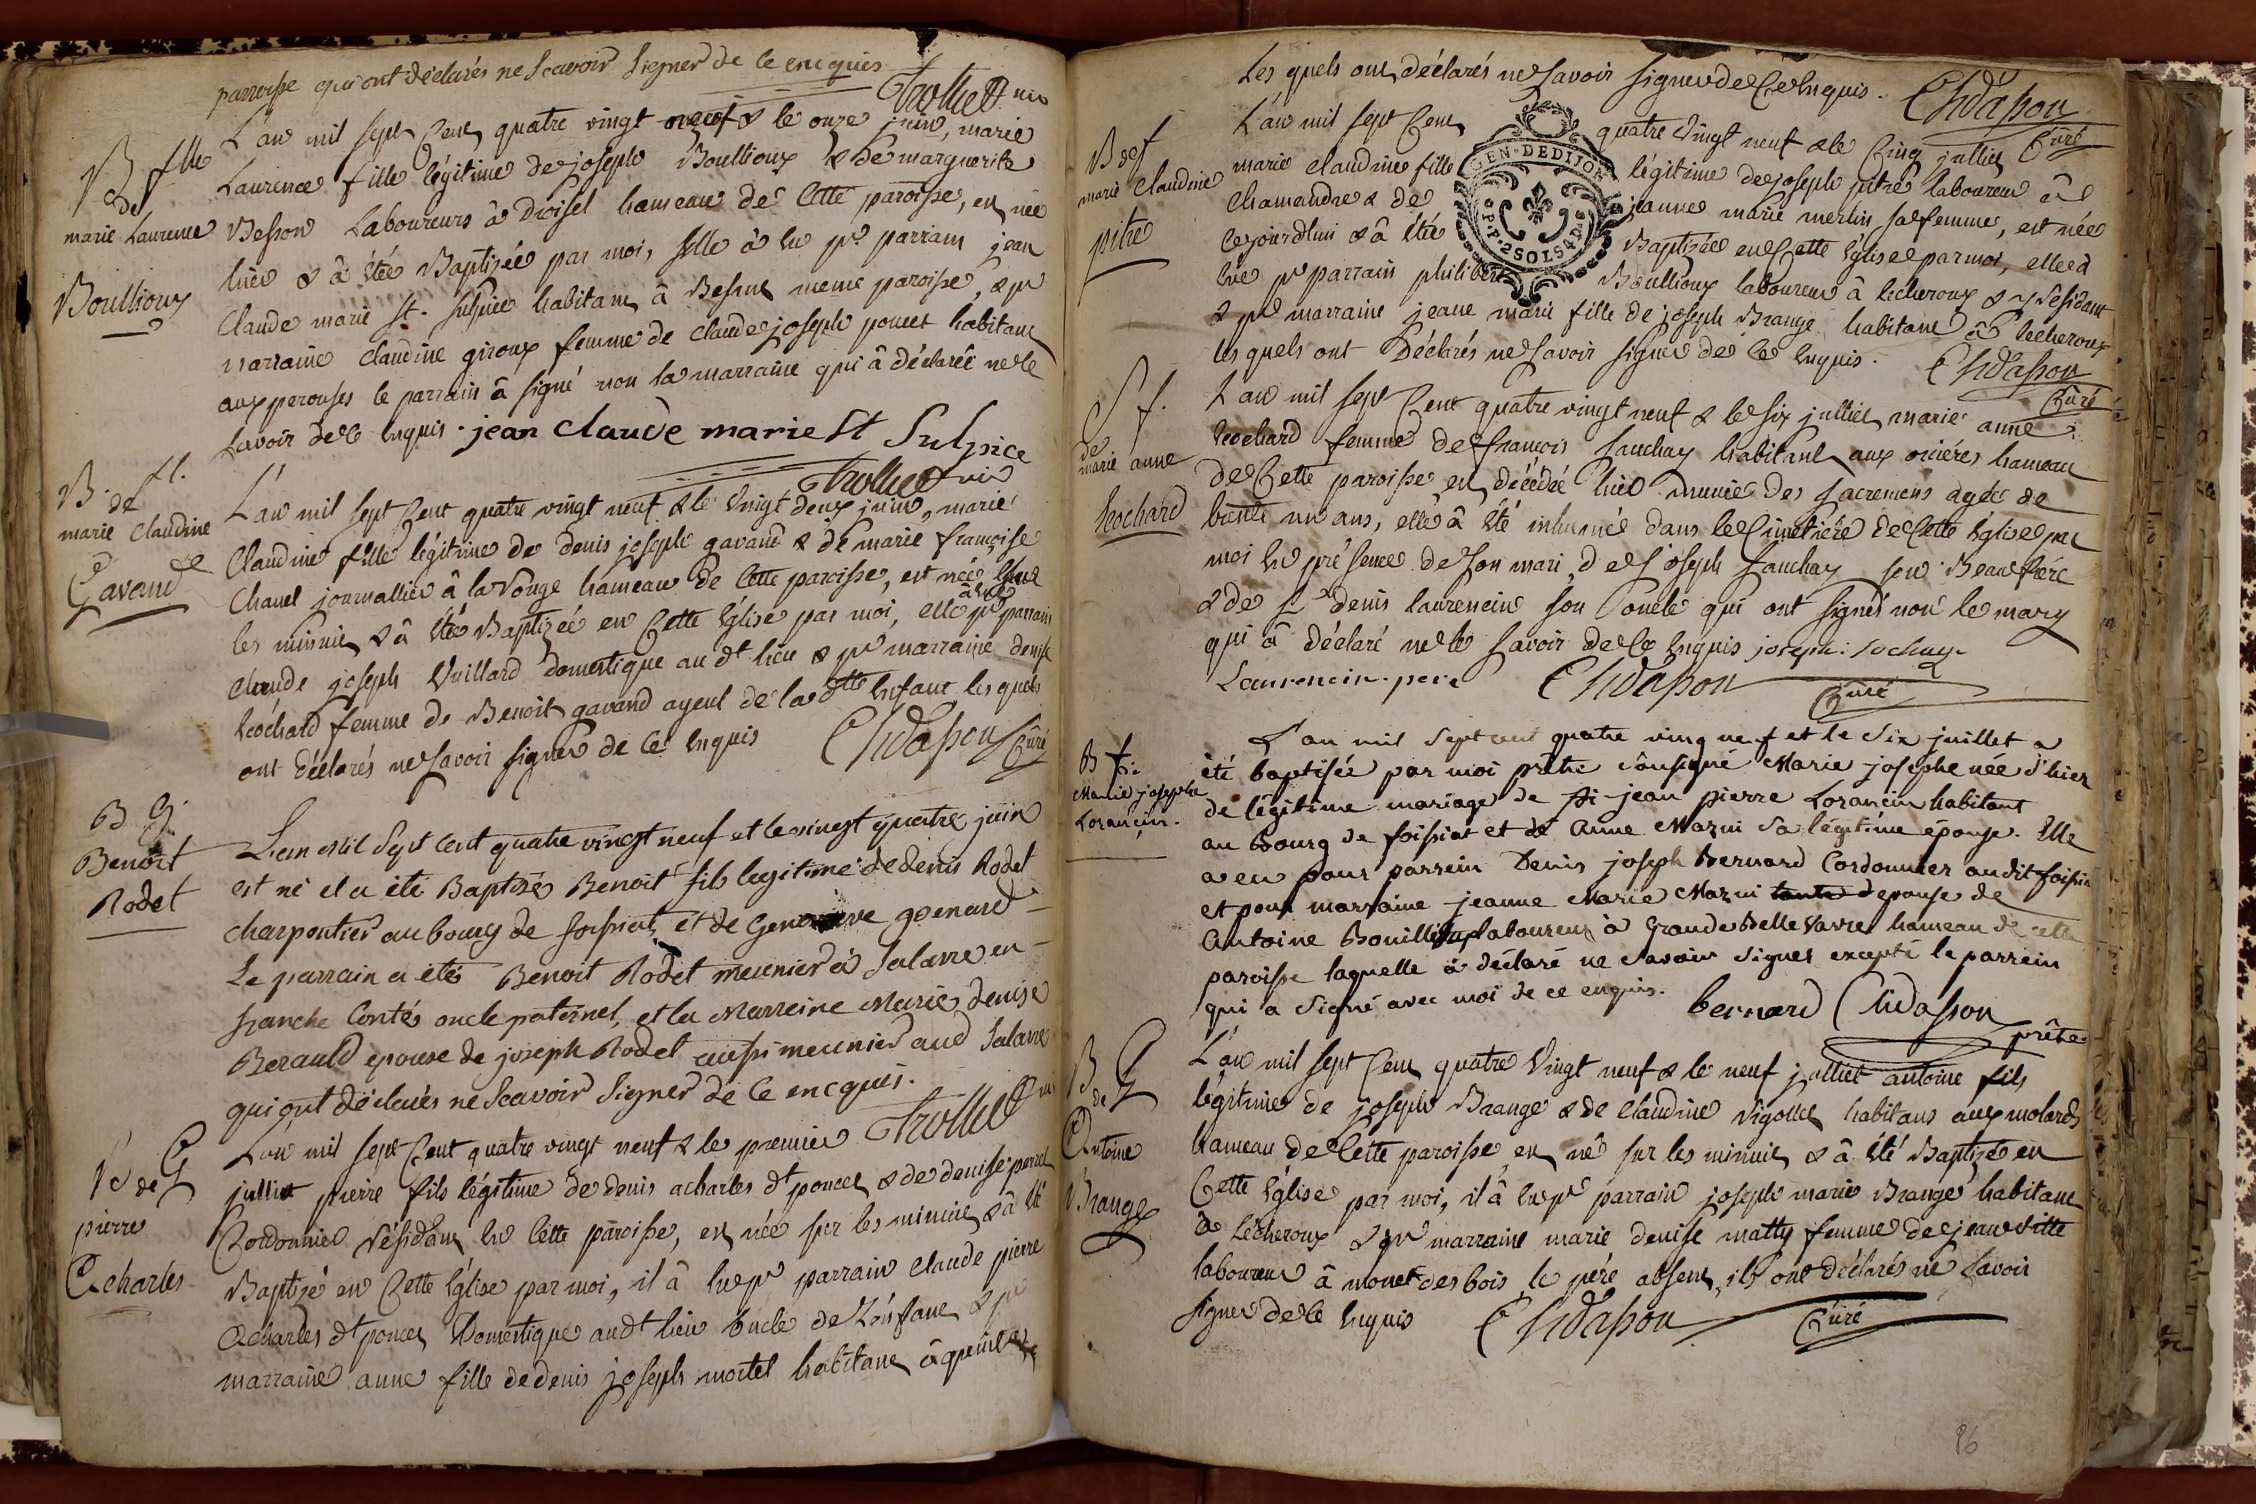 parroisse qui ont déclarés ne Scavoir Signer de ce encquis
Trollier vic
B flle
de
marie Laurence
Boullioux
L'an mil sept Cent quatre vingt neuf & le onze juin, marie
Laurence fille légitime de joseph Boullioux & de marguerite
Besson Laboureurs à Divisel hameau de Cette paroisse, est née
hier & à été Baptizée par moi, elle à eu pr parrain jean
Claude marie St. Sulpice habitant à Besine meme paroisse, & pr
marraine claudine giroux femme de claude joseph poncet habitant
aux perouses le parrain à signé non la marraine qui à déclarée ne le
savoir de ce Enquis. jean claude marie St Sulpice
Trollier vic
B. fl.
de
marie Claudine
Gavand
L'an mil sept Cent quatre vingt neuf & le vingt deux juin, marie
Claudine fille légitime de denis joseph gavand & de marie françoise
Chanel journallier à la Vouge hameau de Cette paroisse, est née sur
les minuit & à été Baptizée en Cette Eglise par moi, elle à eu pr parrain
claude joseph Vuillard domestique au dt lieu & pr marraine denise
Cochard femme de Benoit gavand ayeul de la dtte Enfant lesquels
ont déclarés ne Savoir signer de Ce Enquis Chidasson Curé
B G.
Benoit
Rodet
L'an mil Sept Cent quatre vingt neuf et le vingt quatre juin
est né et a été Baptisé Benoit fils legitime de denis Rodet
charpentier au bourg de foissiat et de Genevieve goenard
Le parrain a été Benoit Rodet meunier à Salavre en
franche Conté, oncle paternel, et la Marreine Marie denise
Berauld epouse de joseph Rodet aussi meunier aud Salavre
qui ont déclarés ne Scavoir Signer de ce encquis.
Trollier vic
B de G
pierre
Acharles
L'an mil sept Cent quatre vingt neuf & le premier
julliet pierre fils légitime de denis acharles dt poncet & de denise
Cordonnier résidant en Cette paroisse, est née sur les minuit & à été
Baptizé en Cette Eglise par moi, il à eu pr parrain claude pierre
Acharles dt poncet Domestique au dt lieu oncle de L'enfant & pr
marraine anne fille de denis joseph mortel habitant à
Les quels ont déclarés ne Savoir signer de Ce Enquis. Chidasson
Curé
B de f
marie Claudine
pitre
L'an mil sept Cent quatre Vingt neuf & le Cinq julliet
marie claudine fille légitime de joseph pitre laboureur à
Chamandre & de jeanne marie merlin sa femme, est née
Cejourdhui & à été Baptizée en Cette Eglise par moi, elle à
eue pr parrain philibert Boullioux laboureur à lecheroux & y résidant
& pr marraine jeane marie fille de joseph Brange habitant à lecheroux
les quels ont Déclarés ne Savoir signer de Ce Enquis. Chidasson
Curé
GEN·DEDIJON
P·P·2SOLS4D
S f.
de
marie anne
Cochard
L'an mil sept Cent quatre vingt neuf & le six julliet marie anne
Cochard femme de françois Sauchay habitant aux oricéres hameau
de Cette paroisse est décédée hier munie des sacremens agée de
trente un ans, elle à été inhumée dans le Cimetière de Cette Eglise par
moi En présence de son mari, de joseph Sauchay son Beaufrére
& de Sr denis laurencin son Concle qui ont signés non le mary
qui à déclaré ne le savoir de Ce Enquis joseph: sochay.
Laurencin. pere Chidasson Curé
B f.
Marie josephe
Lorancin.
L'an mil Sept cent quatre ving neuf et le Six juillet a
été baptisée par moi prêtre soussigné Marie josephe née d'hier
de légitime mariage de Sr jean pierre Lorancin habitant
au Bourg de foissiat et de Anne Mazui sa légitime épouse. Elle
a eu pour parrein Denis joseph Bernard Cordonnier audit foissiat
et pour marraine jeanne Marie Mazui tante depouse de
Antoine Bouillioux laboureur à Grande Belle Vavre hameau de cette
paroisse laquelle a déclaré ne Savoir Signer excepté le parrein
qui a Signé avec moi de ce enquis.
bernard Chidasson
prêtre
B G
de
Antoine
Brange
L'an mil sept Cent quatre Vingt neuf & le neuf julliet antoine fils
légitime de joseph Brange & de claudine Vigollet habitans aux molards
hameau de Cette paroisse est né sur les minuit & à été Baptizé en
Cette Eglise par moi, il à eu pr parrain joseph marie Brange habitant
à Lécheroux & pr marraine marie denise matty femme de jean vitte
laboureur à monet des bois le pére absent, ils ont déclarés ne Savoir
signer de Ce Enquis Chidasson Curé
86